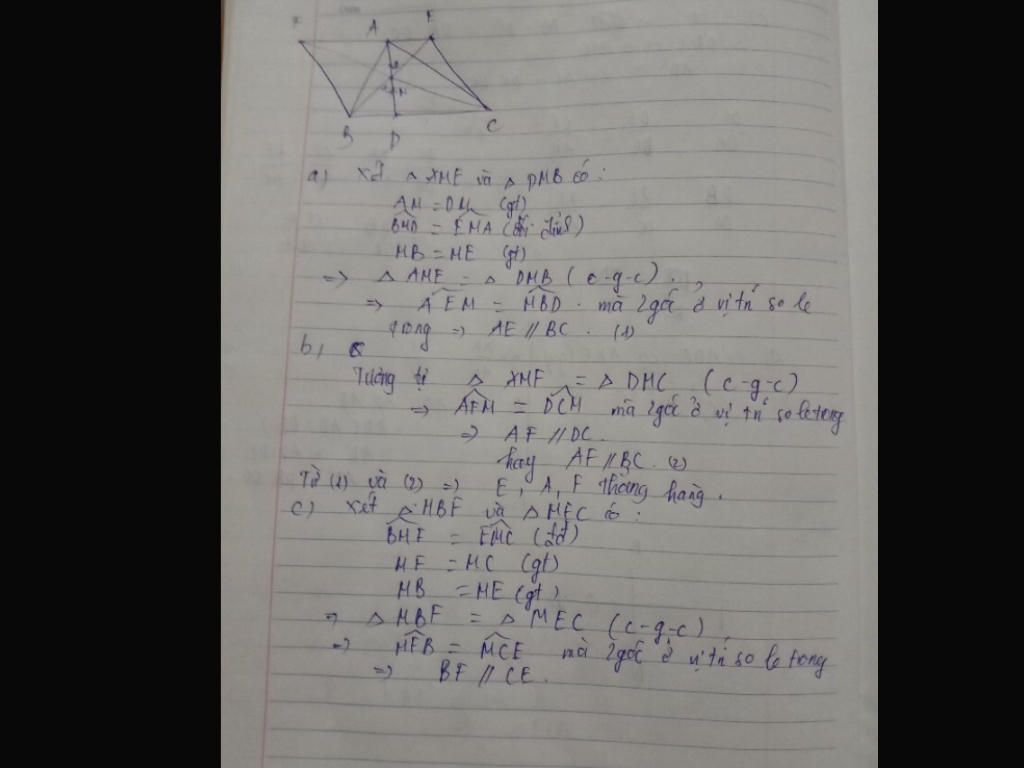 F A E
M
B D C
a) Xét △ AME và △ DMB có:
AM = DM (gt)
BMD = EMA (đối đỉnh)
MB = ME (gt)
=> △ AME = △ DMB (c-g-c).
=> AEM = MBD. mà 2 góc ở vị trí so le
trong => AE // BC. (1)
b)
Tương tự △ AMF = △ DMC (c-g-c)
=> AFM = DCM mà 2 góc ở vị trí so le trong
=> AF // DC.
hay AF // BC. (2)
Từ (1) và (2) => E, A, F thẳng hàng.
c) Xét △ MBF và △ MEC có:
BMF = EMC (đđ)
MF = MC (gt)
MB = ME (gt)
=> △ MBF = △ MEC (c-g-c)
=> MFB = MCE mà 2 góc ở vị trí so le trong
=> BF // CE.